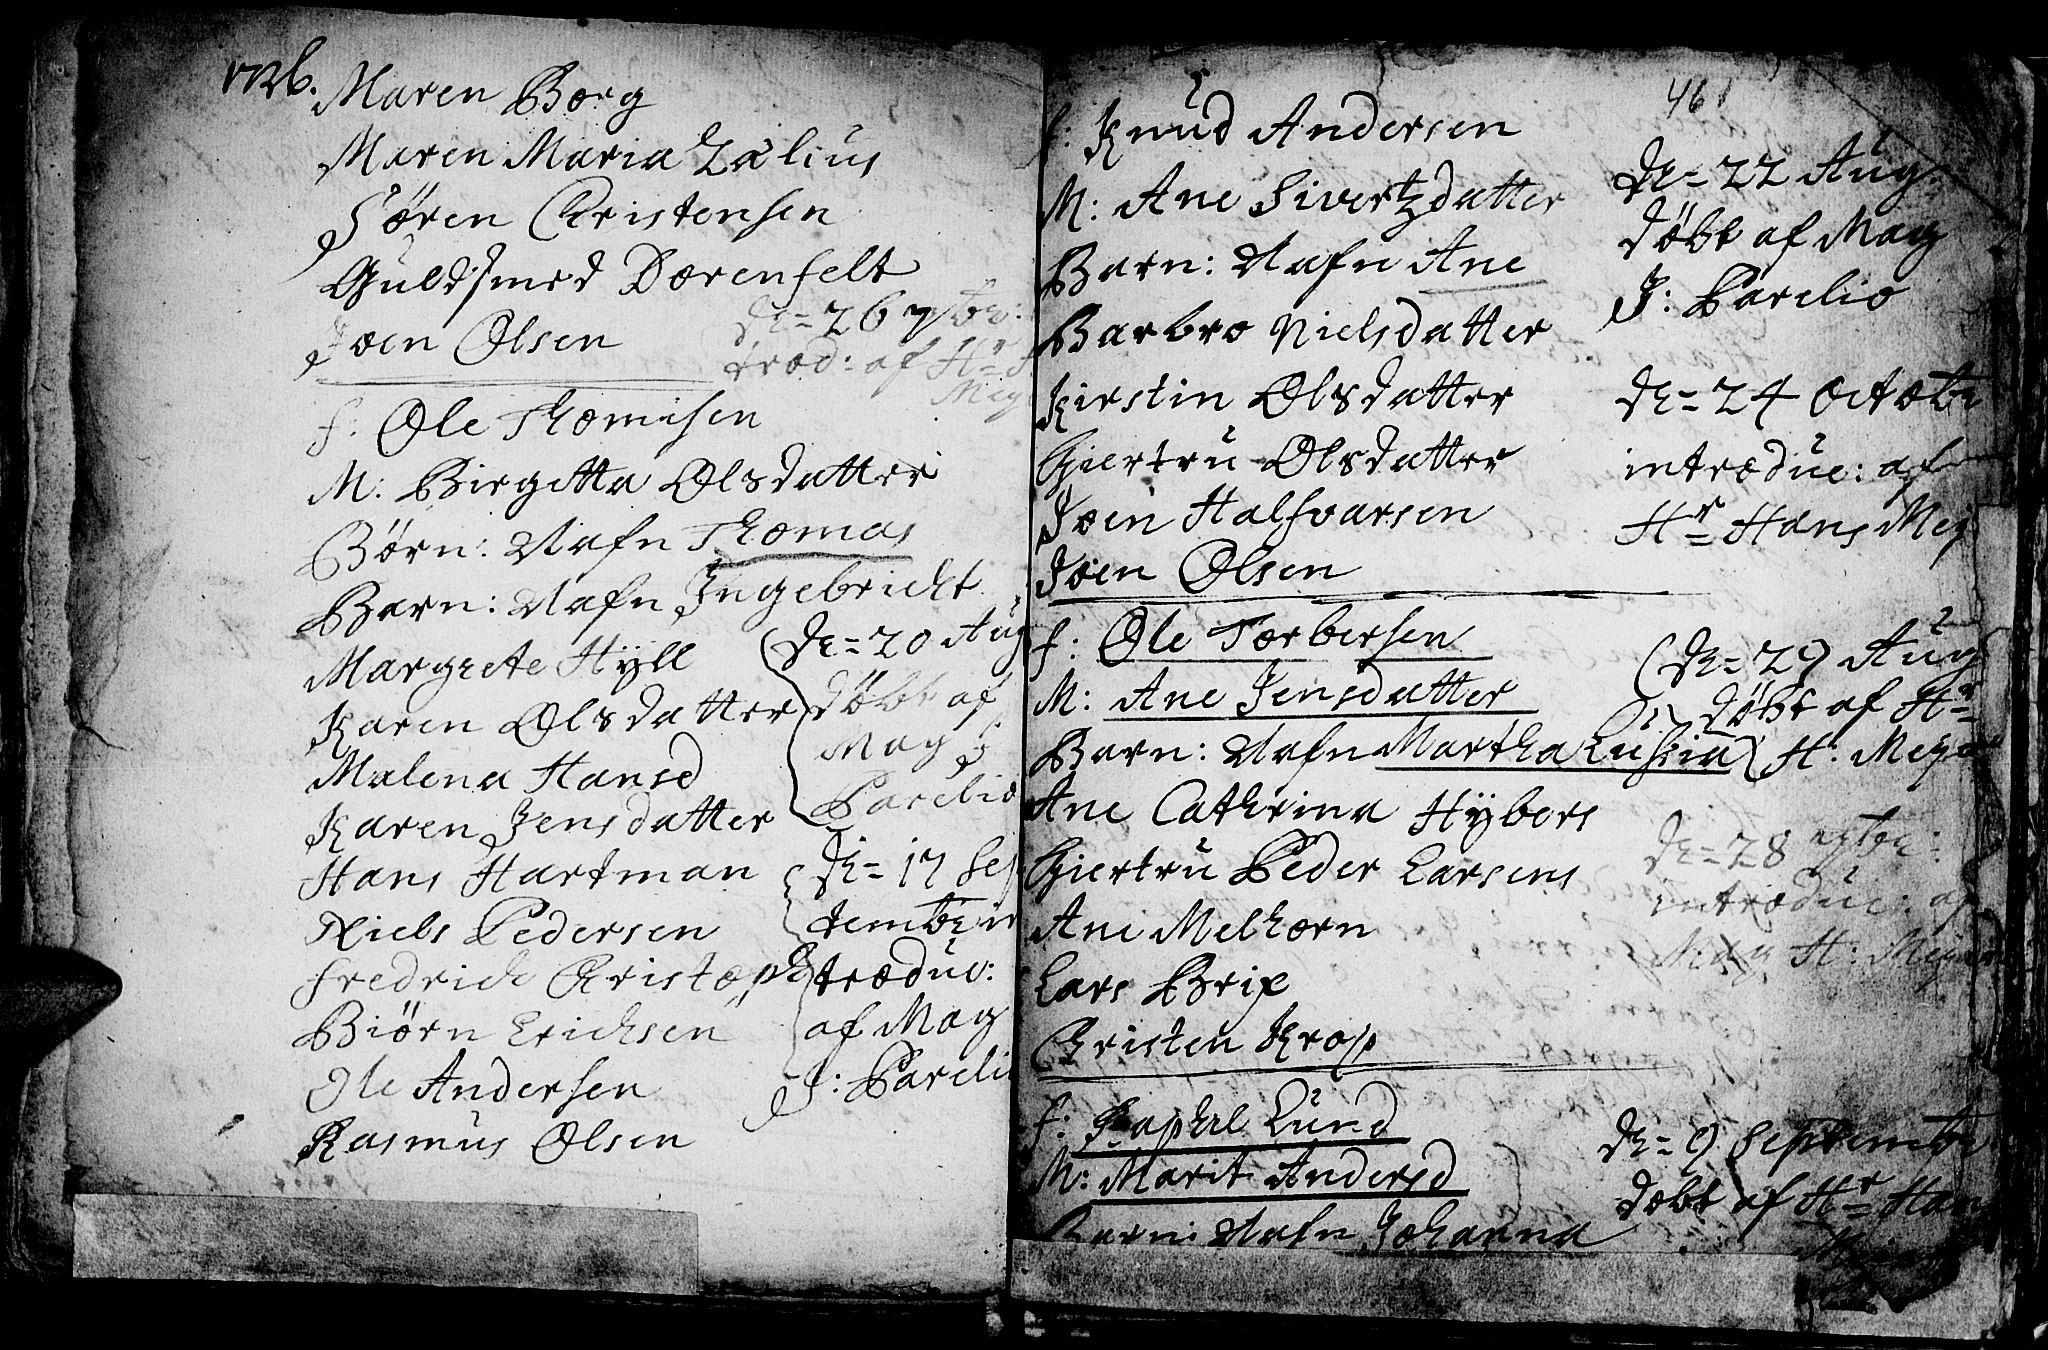 1726. Maren Borg
Maren Maria Zælius
Søren Christensen
Guldsmed Dorenfelt
Joen Olsen
d: 26 7br:
trod: af Hr
Mey
f: Ole Thomisen
M: Birgitta Olsdatter
Børn: Nafn Thomas
Barn: Nafn Ingebricht
Margrete Hÿll
Karen Olsdatter
Malena Hansd
Karen Jensdatter
Hans Hartman
Niels Pedersen
Fredrich Christoph
Biørn Erichsen
Ole Andersen
Rasmus Olsen
d: 20 Aug
døbt af
Mag J
Parelio
d: 17 Sep
tembr in
troduc:
af Mag
J: Pareli
461
f: Knud Andersen
M: Ane Sivertzdatter
Barn: Nafn Ane
Barbro Nielsdatter
Kirstin Olsdatter
Giertru Olsdatter
Joen Halfvarsen
Joen Olsen
d: 22 Aug:
døbt af Mag
J: Parelio
d: 24 octobr
introduc: af
Hr Hans Mey
f: Ole Torbersen
M: Ane Jensdatter
Barn: Nafn Martha Lusia
Ane Cathrina Hÿbers
Giertru Peder Larsens
Ane Melhorn
Lars Brix
Christen Krop
d: 29 Aug
døbt af Hr
H: Meyer
d: 28
introduc: af
Mag H: Meyer
f: Raphel Lund
M: Marit Andersd
Barn: Nafn Johanna
d: 9 Septembr
døbt af Hr Han